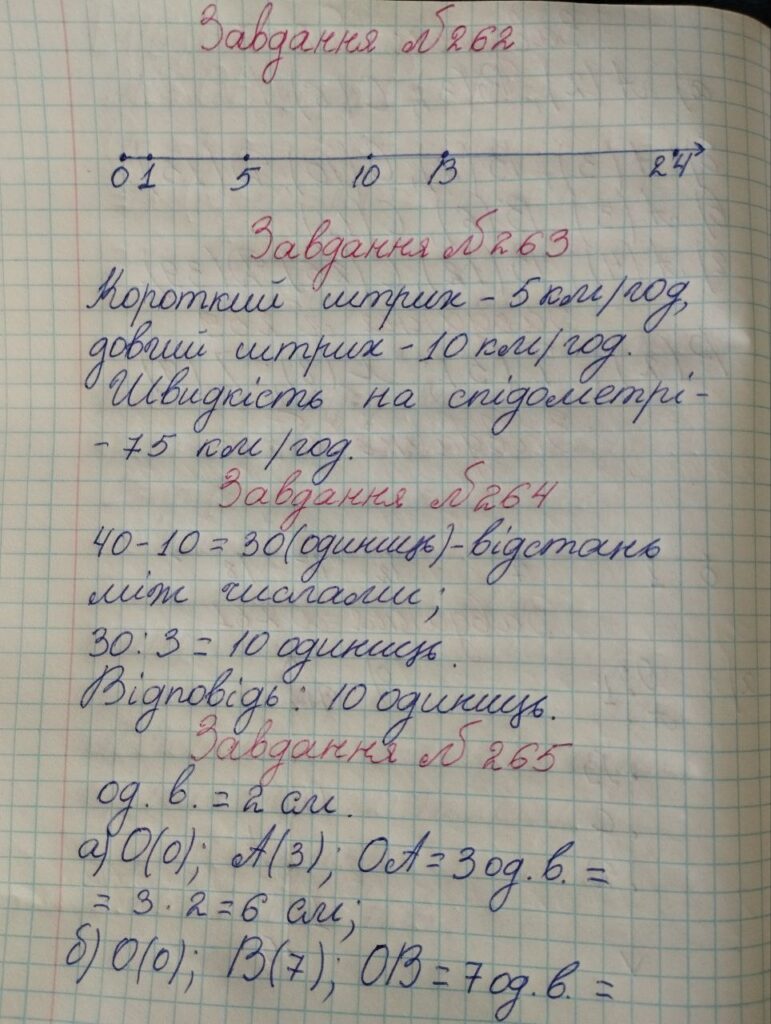 Завдання №262
0 1 5 10 13 24
Завдання №263
Короткий штрих - 5 км/год,
довгий штрих - 10 км/год.
Швидкість на спідометрі -
- 75 км/год.
Завдання №264
40 - 10 = 30 (одиниць) - відстань
між числами;
30 : 3 = 10 одиниць.
Відповідь: 10 одиниць.
Завдання №265
од. в. = 2 см.
а) O(0); A(3); OA = 3 од. в. =
= 3 · 2 = 6 см;
б) O(0); B(7); OB = 7 од. в. =